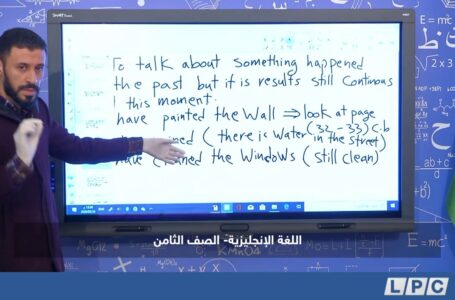 To talk about something happened
the past but it is results still Continous
this moment.
have painted the Wall ⇒ look at page
(32 - 33) C.b
(there is Water in the street)
have cleaned the Windows (still clean)
اللغة الإنجليزية- الصف الثامن
LPC